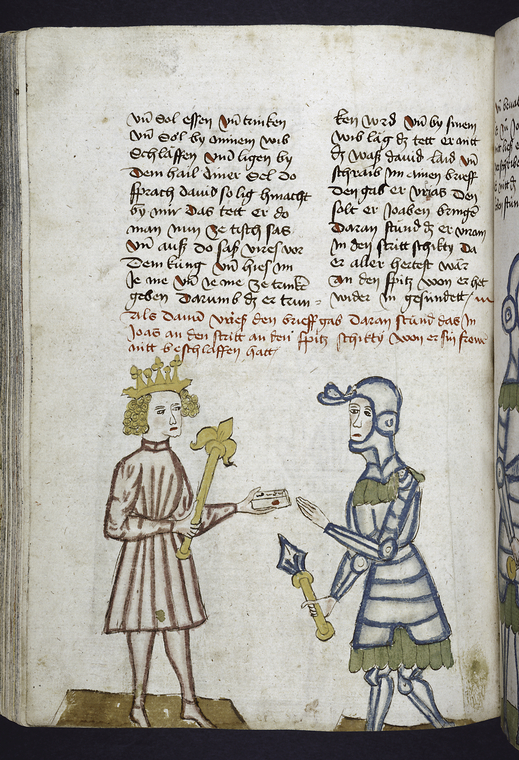 vnd Sol essen vnd trinken
vnd Sol by einnem wib
Schlaffen vnd ligen by
Dem hail diner Sel do
sprach dauid so lig hinacht
by mir Das tett er do
man nun ze tisch sas
vnd auss do sass vries vor
Dem küng vnd hies im
Je me vnd Je me ze trinkē
geben Darumb dz er trun=
ken wrd vnd by sinem
wib läg dz tett er nitt
dz was dauid laid vnd
schraib im einen brieff
Den gab er vrias Den
solt er Joaben bringē
Daran stund dz er vriam
In den stritt schikty Da
er aller hertest wär
An den spitz won er het
wider in gesündett
Als Dauid vries den brieff gab Daran stund das In
Joas an den stritt an den spitz schikty won er sin frowē
nitt beschlaffen hatt